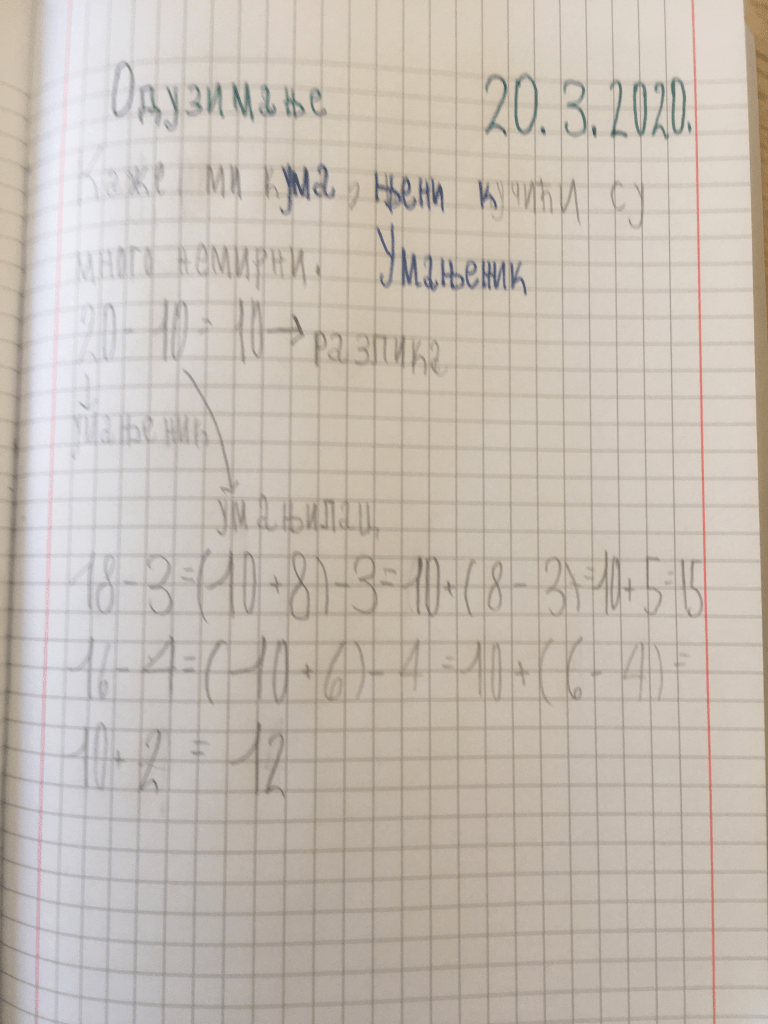 Одузимање 20.3.2020.
Каже ми кума, њени кучићи су
много немирни. Умањеник
20 - 10 = 10 → разлика
умањеник
умањилац
18 - 3 = (10 + 8) - 3 = 10 + (8 - 3) = 10 + 5 = 15
16 - 4 = (10 + 6) - 4 = 10 + (6 - 4) =
10 + 2 = 12